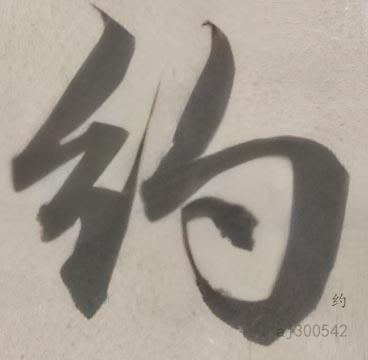 约
约
aj300542